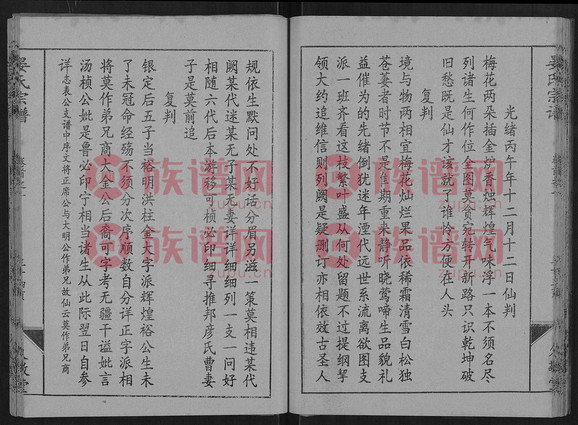 光緒丙午年十二月十二日仙判
梅花兩朵插金炉香烛輝煌氣味浮一本不須名尽
列诸生何作位全图莫負宛转开新路只识乾坤破
旧愁既是仙才该就了谁怜方便在人头
复判
境与物两相宜梅花灿烂果品依稀霜清雪白松独
苍萎者时节不是催期重来静听晓莺啼生品貌礼
益催为的先绪倒犹迷年湮代远世系流离欲图支
派一班齐看这枝繁叶盛从何处留题不过提纲挈
领大约追维信则列阙是疑删订亦相依效古圣人
规依生默问处不好话分眉另滋一策莫相违某代
阙某代迷某无子某无妻详详细细列一支一问好
相随六代后本游移可桢必印细寻推邦彦氏曹妻
子是莫前追
复判
银定后五子当裕明洪柱金大字派辉煌裕公生未
了未冠命经殇不须分次序顺数自分详正字派相
将莫作弟兄商大金公后裔可字考无疆干谥妣言
汤桢公妣是鲁必印宁相当诸生从此际翌日自参
详志表公支谱中序文将正席公与大明公作弟兄故仙云莫作弟兄商
晏氏宗谱
晏氏宗谱
族谱网
zupu.cn
族谱网
zupu.cn
族谱网
zupu.cn
族谱网
zupu.cn